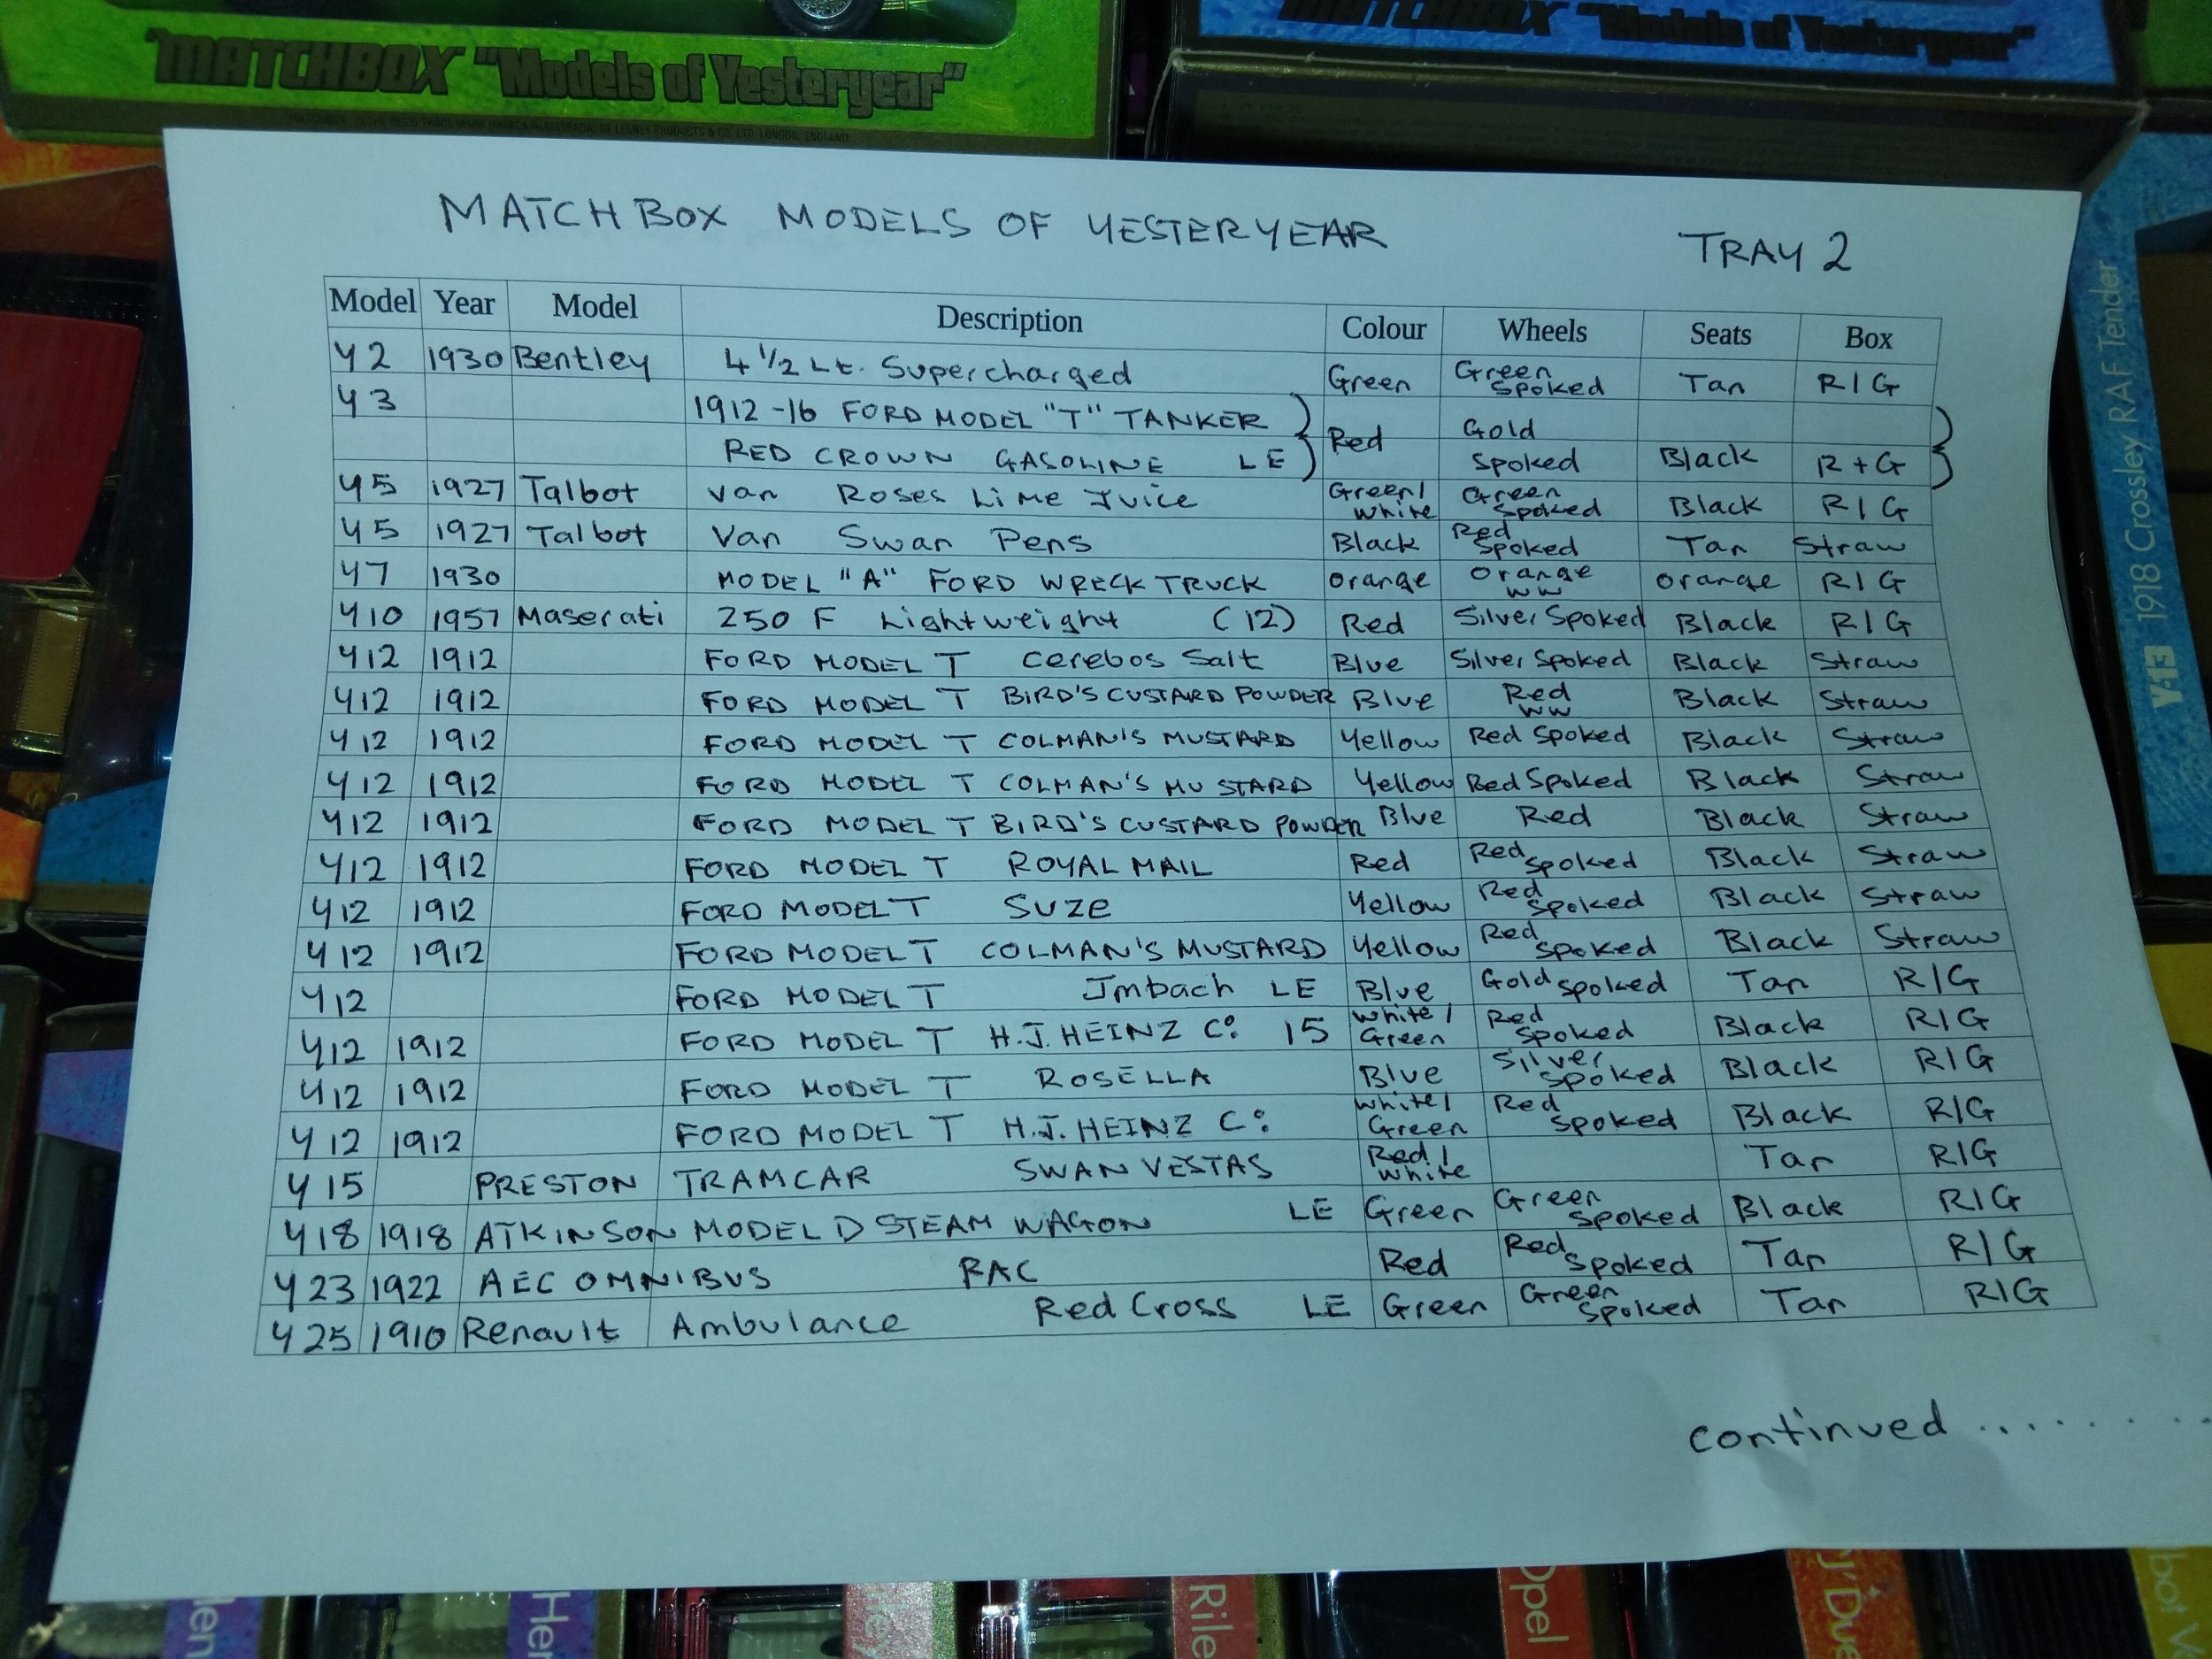 MATCHBOX "Models of Yesteryear"
MATCHBOX "Models of Yesteryear"
MATCHBOX MODELS OF YESTERYEAR TRAY 2
Model Year Model Description Colour Wheels Seats Box
Y2 1930 Bentley 4 1/2 Lt. Supercharged Green Green Spoked Tan R/G
Y3 1912-16 FORD MODEL "T" TANKER Red Gold
RED CROWN GASOLINE LE Spoked Black R+G
Y5 1927 Talbot Van Roses Lime Juice Green/White Green Spoked Black R/G
Y5 1927 Talbot Van Swan Pens Black Red Spoked Tan Straw
Y7 1930 MODEL "A" FORD WRECK TRUCK Orange Orange WW Orange R/G
Y10 1957 Maserati 250 F Lightweight (12) Red Silver Spoked Black R/G
Y12 1912 FORD MODEL T Cerebos Salt Blue Silver Spoked Black Straw
Y12 1912 FORD MODEL T BIRD'S CUSTARD POWDER Blue Red WW Black Straw
Y12 1912 FORD MODEL T COLMAN'S MUSTARD Yellow Red Spoked Black Straw
Y12 1912 FORD MODEL T COLMAN'S MUSTARD Yellow Red Spoked Black Straw
Y12 1912 FORD MODEL T BIRD'S CUSTARD POWDER Blue Red Black Straw
Y12 1912 FORD MODEL T ROYAL MAIL Red Red Spoked Black Straw
Y12 1912 FORD MODEL T SUZE Yellow Red Spoked Black Straw
Y12 1912 FORD MODEL T COLMAN'S MUSTARD Yellow Red Spoked Black Straw
Y12 FORD MODEL T Imbach LE Blue Gold Spoked Tan R/G
Y12 1912 FORD MODEL T H.J. HEINZ Co. 15 White/Green Red Spoked Black R/G
Y12 1912 FORD MODEL T ROSELLA Blue Silver Spoked Black R/G
Y12 1912 FORD MODEL T H.J. HEINZ Co. White/Green Red Spoked Black R/G
Y15 PRESTON TRAMCAR SWAN VESTAS Red/White Tan R/G
Y18 1918 ATKINSON MODEL D STEAM WAGON LE Green Green Spoked Black R/G
Y23 1922 AEC OMNIBUS RAC Red Red Spoked Tan R/G
Y25 1910 Renault Ambulance Red Cross LE Green Green Spoked Tan R/G
continued ........
Y-13 1918 Crossley RAF Tender
Rile
Opel